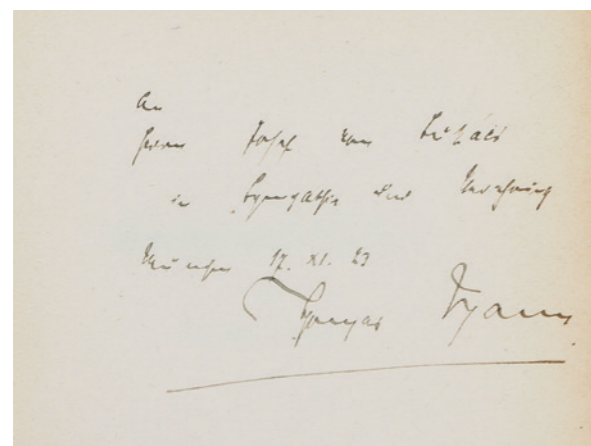 An
Herrn Josef von Lukács
in Sympathie und Verehrung
München 17. XI. 23
Thomas Mann.